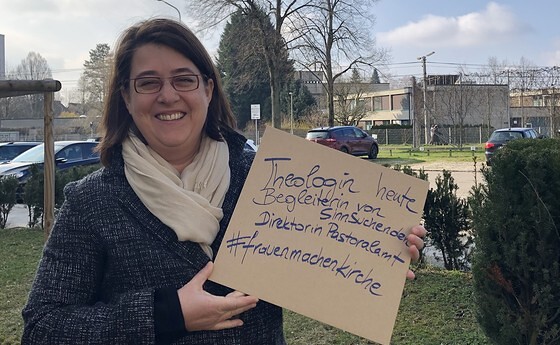 Theologin heute
Begleiterin von
SinnSuchenden
Direktorin Pastoralamt
#frauenmachenkirche